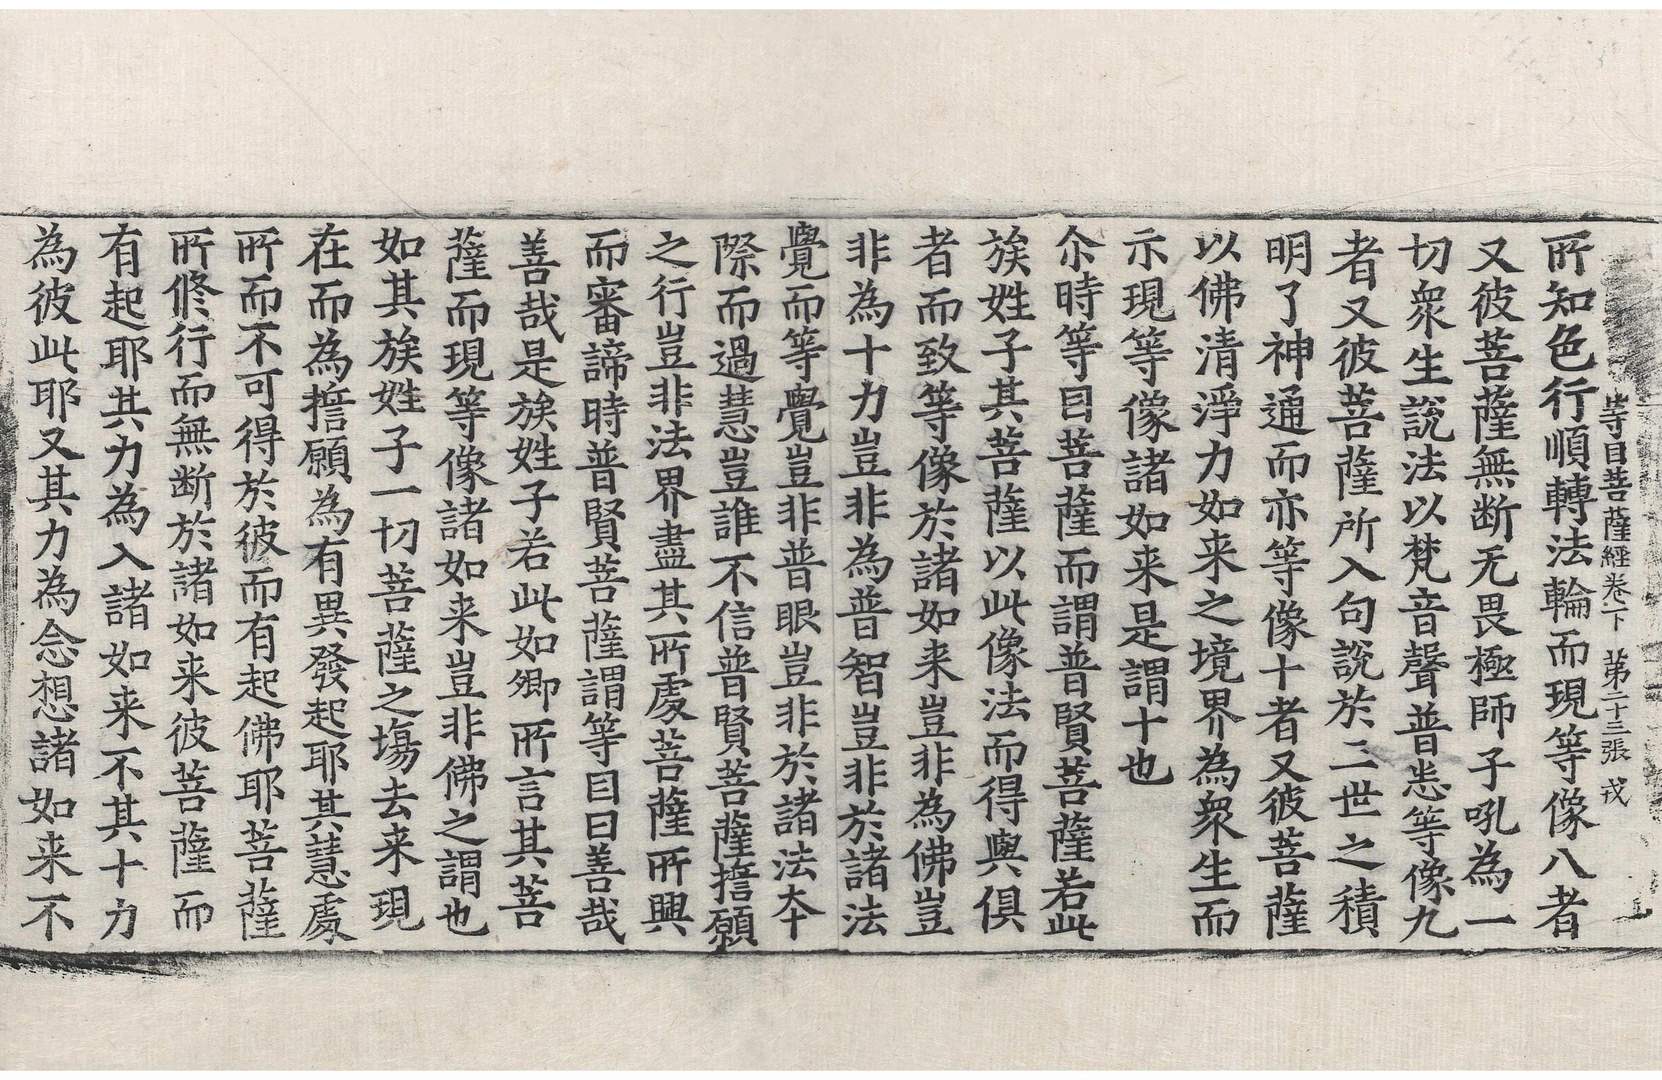 等目菩薩經卷下　第二十三張　戎
所知色行順轉法輪而現等像八者
又彼菩薩無断无畏極師子吼為一
切衆生說法以梵音聲普悉等像九
者又彼菩薩所入句說於三世之積
明了神通而亦等像十者又彼菩薩
以佛清淨力如来之境界為衆生而
示現等像諸如来是謂十也
尒時等目菩薩而謂普賢菩薩若此
族姓子其菩薩以此像法而得與俱
者而致等像於諸如来豈非為佛豈
非為十力豈非為普智豈非於諸法
覺而等覺豈非普眼豈非於諸法夲
際而過慧豈誰不信普賢菩薩擔願
之行豈非法界盡其所處菩薩所興
而審諦時普賢菩薩謂等目曰善哉
善哉是族姓子若此如卿所言其菩
薩而現等像諸如来豈非佛之謂也
如其族姓子一切菩薩之塲去来現
在而為擔願為有異發起耶其慧處
所而不可得於彼而有起佛耶菩薩
所修行而無断於諸如来彼菩薩而
有起耶其力為入諸如来不其十力
為彼此耶又其力為念想諸如来不